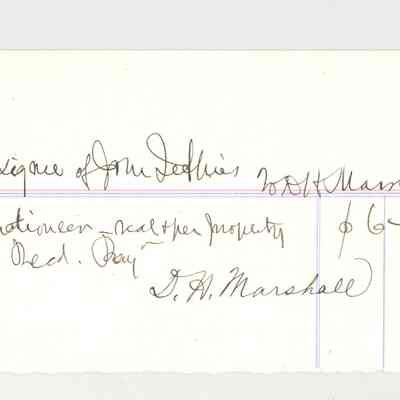 signee of John Jeffries To D H Mars
uctioneer - real & per property $ 6-
Recd. Pay
D. H. Marshall